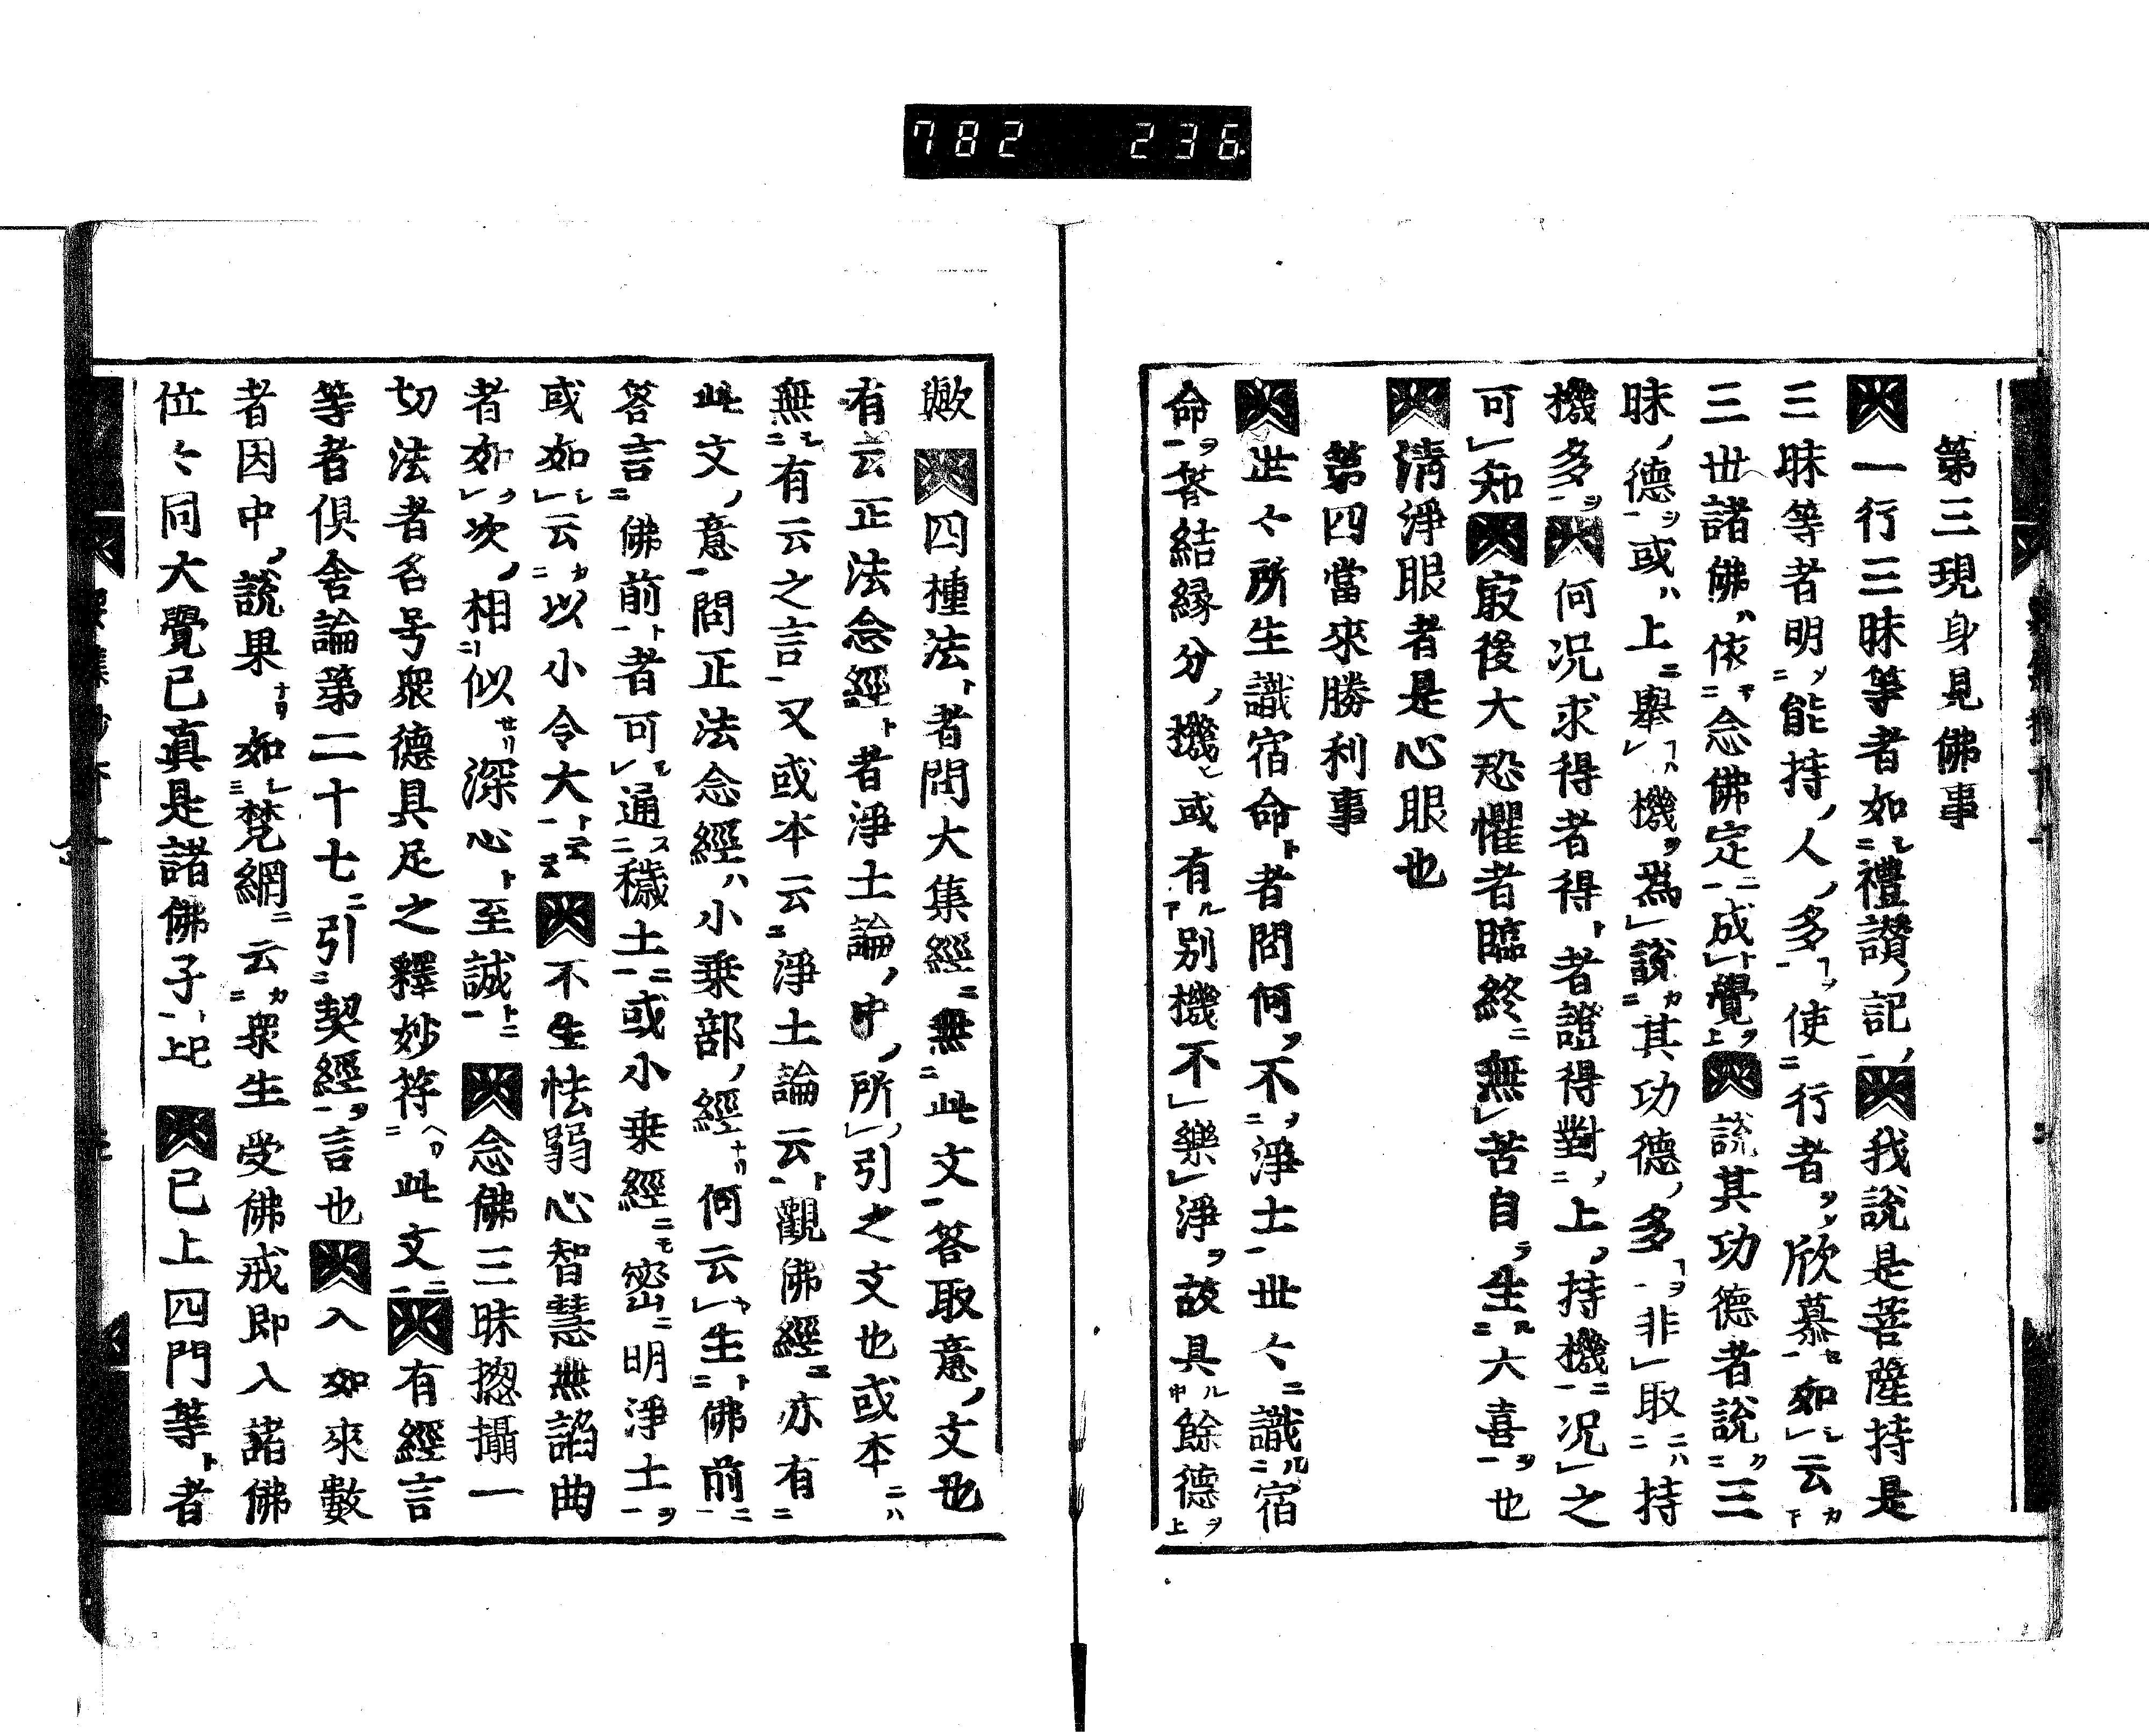 782 236
第三現身見佛事
一行三昧等者如禮讃記我説是菩薩持是
三昧等者明能持人多使行者欣慕如云
三世諸佛依念佛定成覺説其功德者説三
昧德或上擧機爲説其功德多非取持
機多何況求得者得者證得對上持機況之
可知冣後大恐懼者臨終無苦自生大喜也
清淨眼者是心眼也
第四當來勝利事
世々所生識宿命者問何不淨土世々識宿
命答結縁分機或有別機不樂淨故具餘德
歟 四種法者問大集經無此文答取意文也
有云正法念經者淨土論中所引之文也或本
無有云之言又或本云淨土論云觀佛經亦有
此文意問正法念經小乗部經何云生佛前
答言佛前者可通穢土或小乗經密明淨土
或如云以小令大云云不生怯弱心智慧無諂曲
者如次相似深心至誠念佛三昧揔攝一
切法者名号衆德具足之釋妙符此文有經言
等者倶舎論第二十七引契經言也入如來數
者因中説果如梵網云衆生受佛戒即入諸佛
位々同大覺已真是諸佛子上已已上四門等者